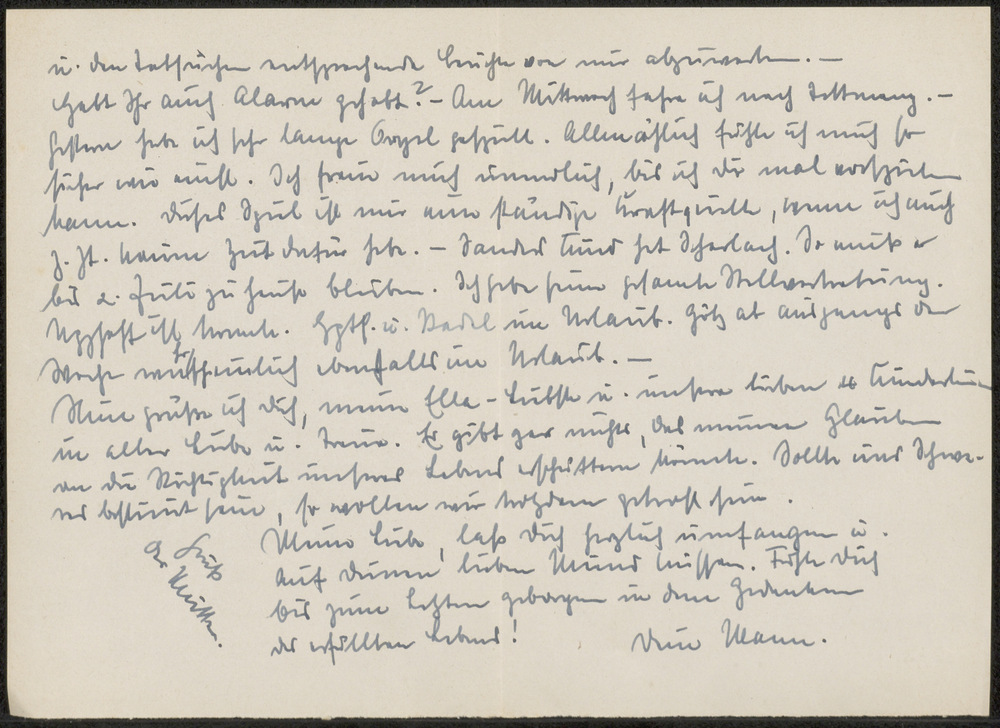 u. den Tatsachen entsprechende Berichte von mir abzuwarten. —
Habt Ihr auch Alarm gehabt? – Am Mittwoch fahre ich nach . –
Gestern habe ich sehr lange Orgel gespielt. Allmählich fühle ich mich so
sicher wie einst. Ich freue mich unendlich, bis ich Dir mal vorspielen
kann. Dieses Spiel ist mir eine ständige Kraftquelle, wenn ich auch
z. Zt. kaum Zeit dafür habe. – Sanders Kind hat Scharlach. So muß er
bis 2. Juli zu Hause bleiben. Ich habe seine gesamte Stellvertretung.
ist krank. Hptf. u. Stadel im Urlaub. Götz ab Ausgangs der
Woche wahrscheinlich ebenfalls im Urlaub. —
Nun grüße ich Dich, meine Ella-Liebste u. unsere lieben 4 Kinderlein
in aller Liebe u. Treue. Es gibt gar nichts, das meinen Glauben
an die Richtigkeit unseres Lebens erschüttern könnte. Sollte uns Schwe-
res bestimmt sein, so wollen wir trotzdem getrost sein.
Meine Liebe, laß Dich herzlich umfangen u.
auf Deinen lieben Mund küssen. Fühle Dich
bis zum Letzten geborgen in dem Gedenken
des erfüllten Lebens!
Dein Mann.
Gruß
der Mutter.